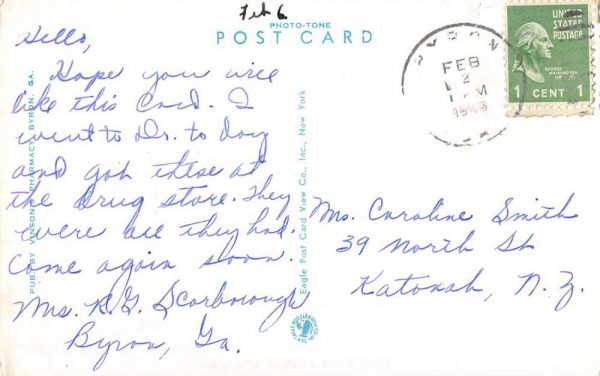 Feb 6
PHOTO-TONE
POST CARD
Hello,
Hope you will
like this Card. I
went to Dr. to day
and got these at
the drug store. They
were all they had.
Come again soon.
Mrs. R.G. Scarborough
Byron, Ga.
PUB. BY VINSON'S PHARMACY, BYRON, GA.
Eagle Post Card View Co., Inc., New York
BYRON
FEB
2
PM
UNITED
STATES
POSTAGE
GEORGE
WASHINGTON
1 CENT 1
Ms. Caroline Smith
39 North St
Katonah, N.Y.